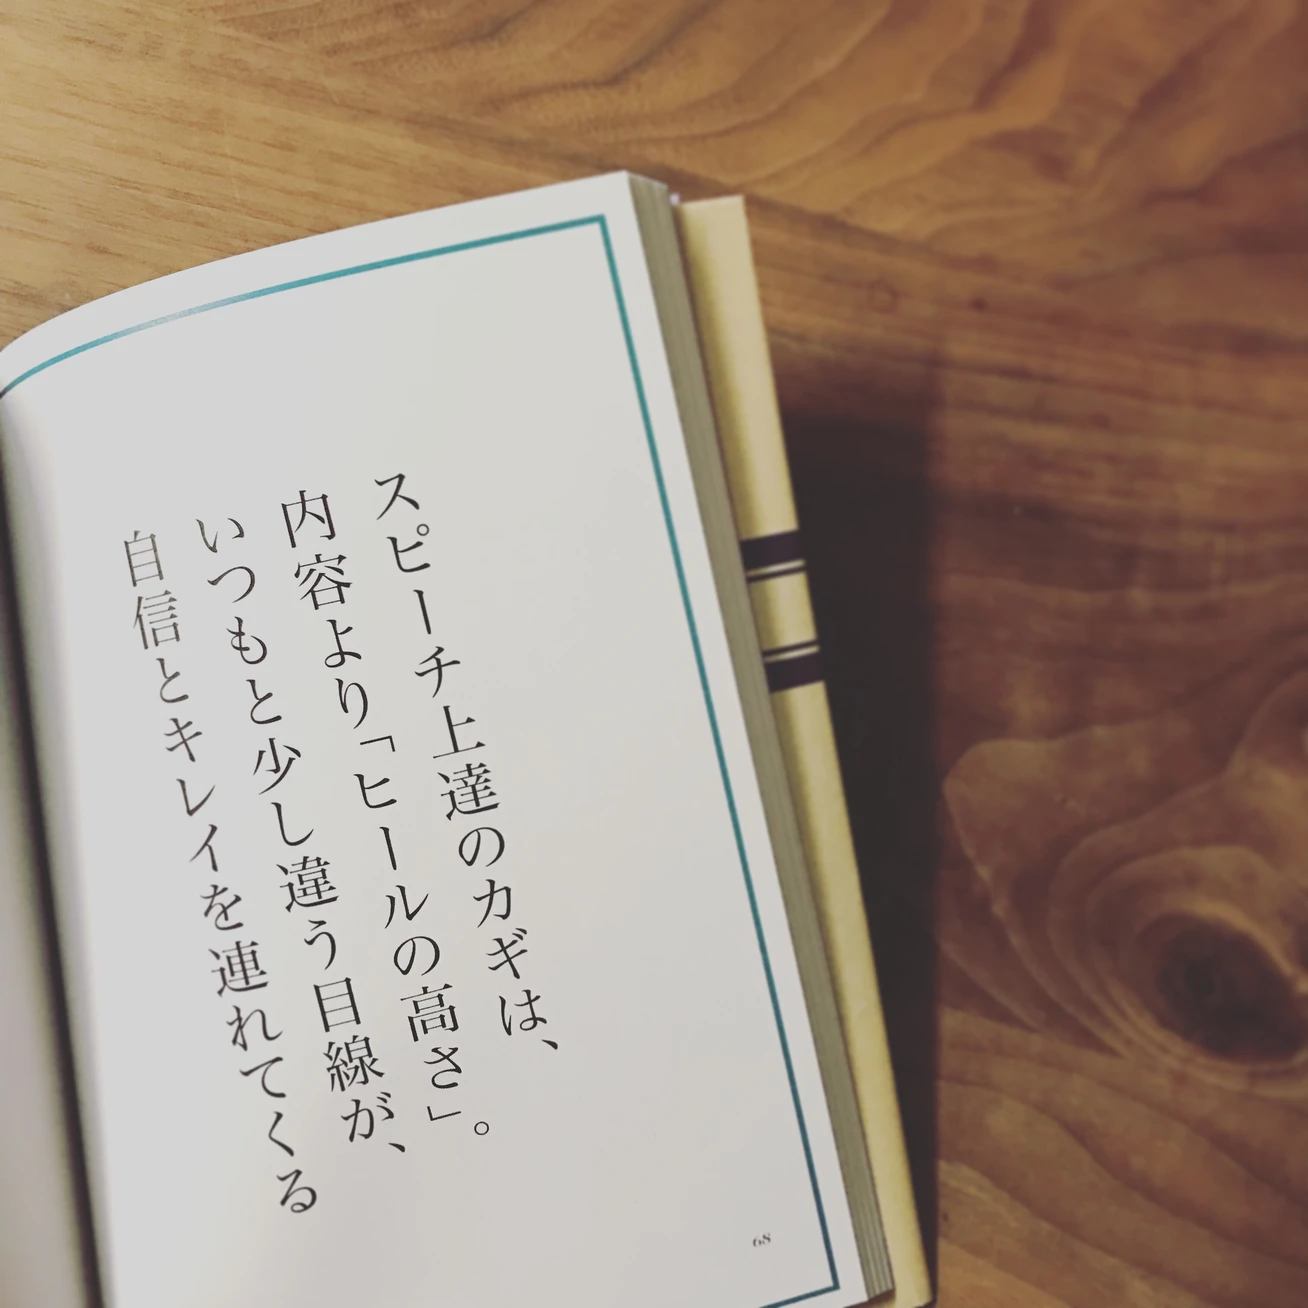 スピーチ上達のカギは、
内容より「ヒールの高さ」。
いつもと少し違う目線が、
自信とキレイを連れてくる
68